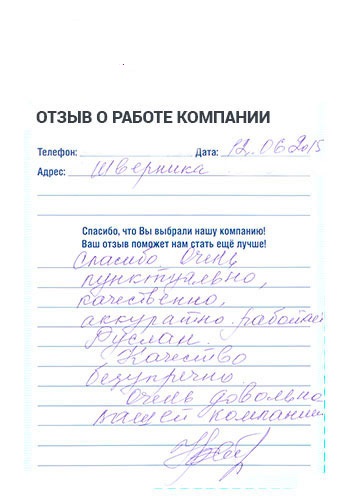 ОТЗЫВ О РАБОТЕ КОМПАНИИ
Телефон: Дата: 12.06.2015
Адрес: Шверника
Спасибо, что Вы выбрали нашу компанию!
Ваш отзыв поможет нам стать ещё лучше!
Спасибо. Очень
пунктуально,
качественно,
аккуратно работает
Руслан.
Качество
безупречно
Очень довольна
вашей компанией